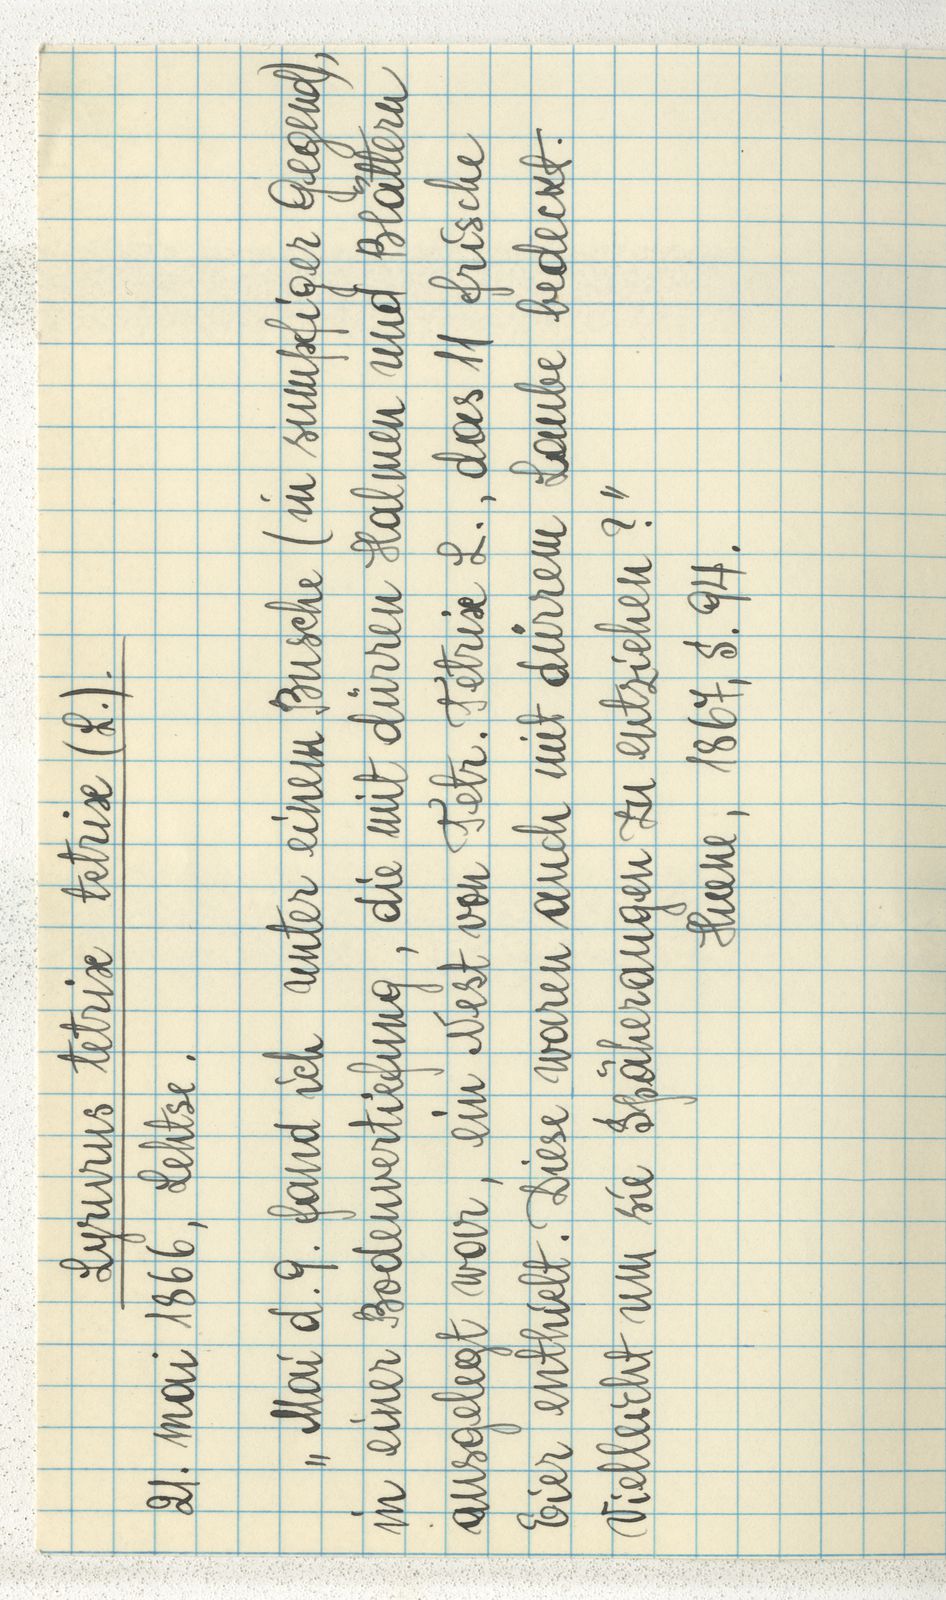 Lyrurus tetrix tetrix (L.).
21. mai 1866, Lehtse.
„Mai d. 9. fand ich unter einem Busche (in sumpfiger Gegend),
in einer Bodenvertiefung, die mit dürren Halmen und Blättern
ausgelegt war, ein Nest von Tetr. Tetrix L., das 11 frische
Eier enthielt. Diese waren auch mit dürrem Laube bedeckt.
Vielleicht um sie Späheraugen zu entziehen?"
Huene, 1867, S. 94.